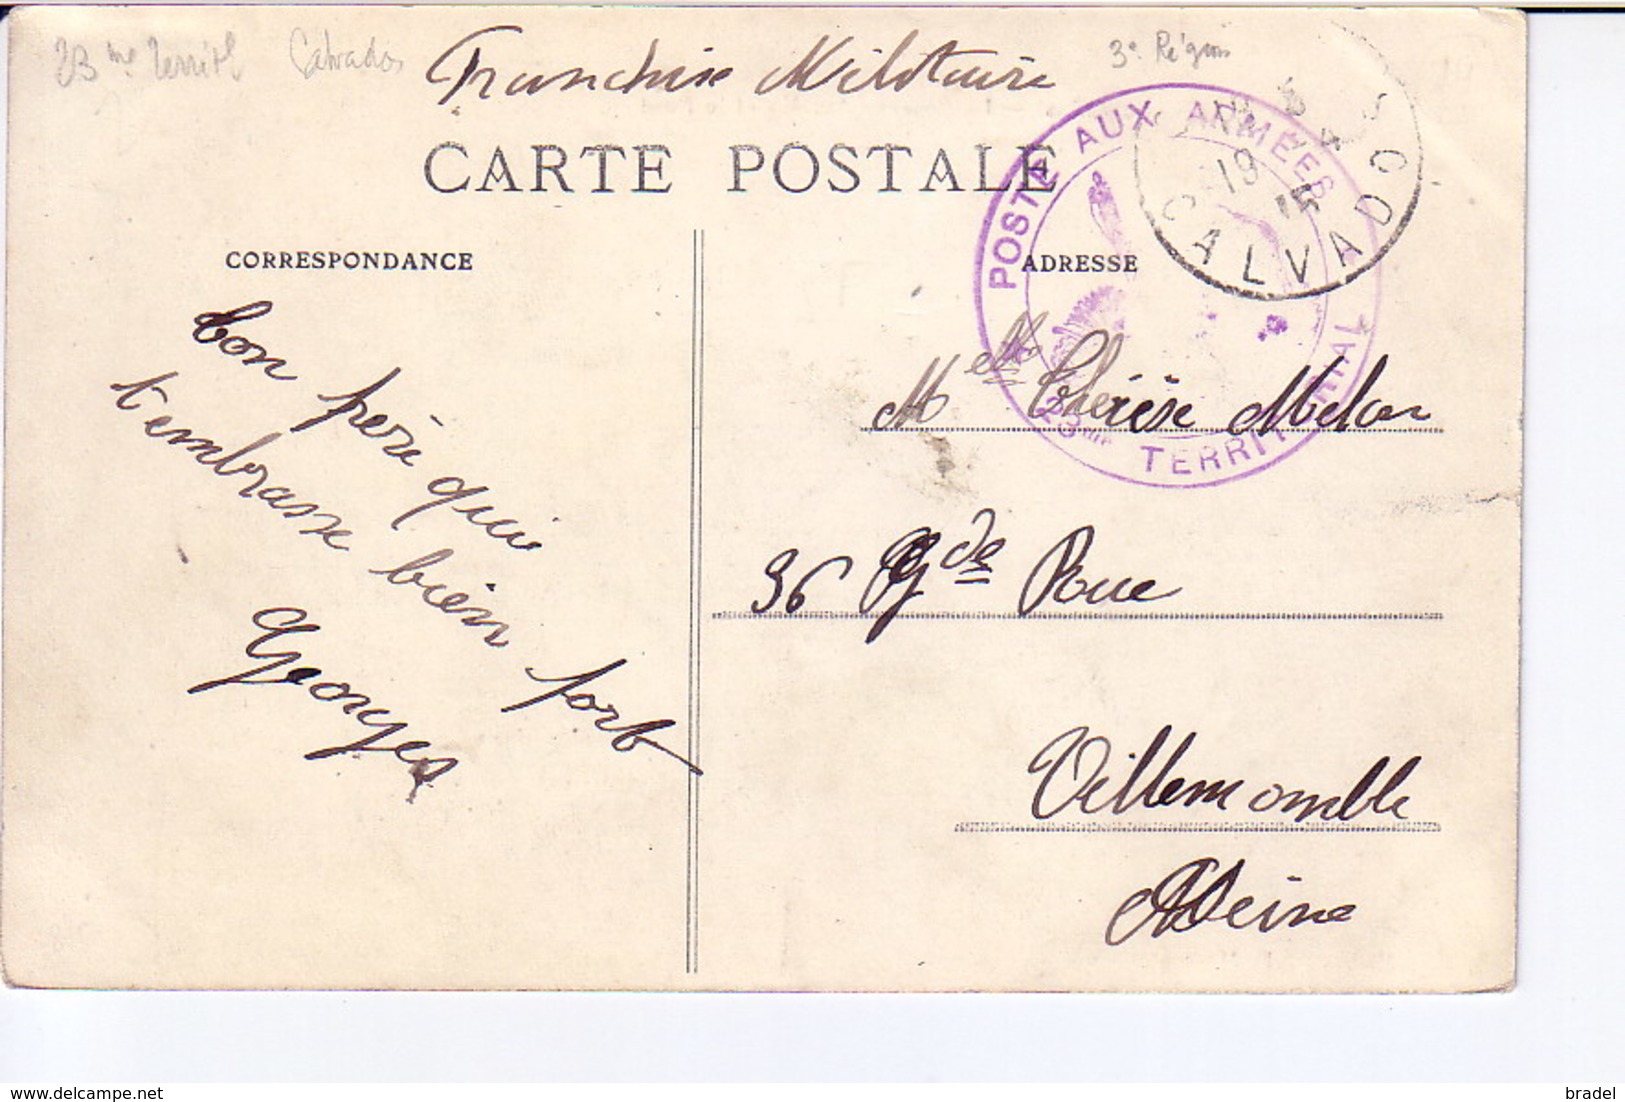 23 me Territ
Calvados
3e Région
Franchise Militaire
CARTE POSTALE
CORRESPONDANCE
ADRESSE
POSTE AUX ARMÉES
23me TERRITORIAL
19
15
CALVADOS
ton père qui
t'embrasse bien fort
Georges
Melle Thérèse
36 Gde Rue
Villemomble
Seine
bradel